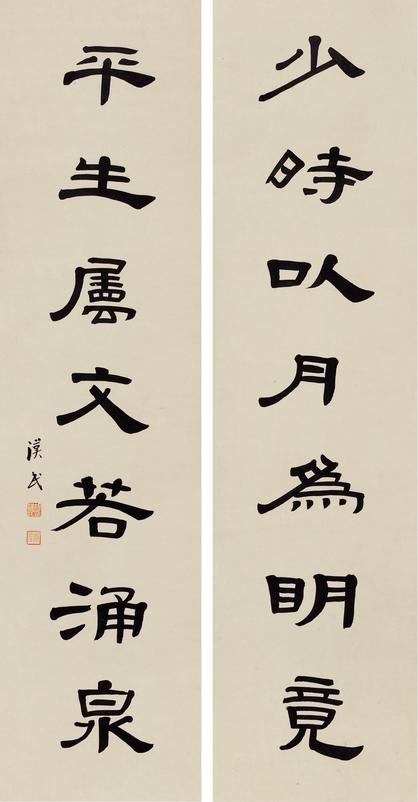 少時以月為明竟
平生屬文若涌泉
漢民